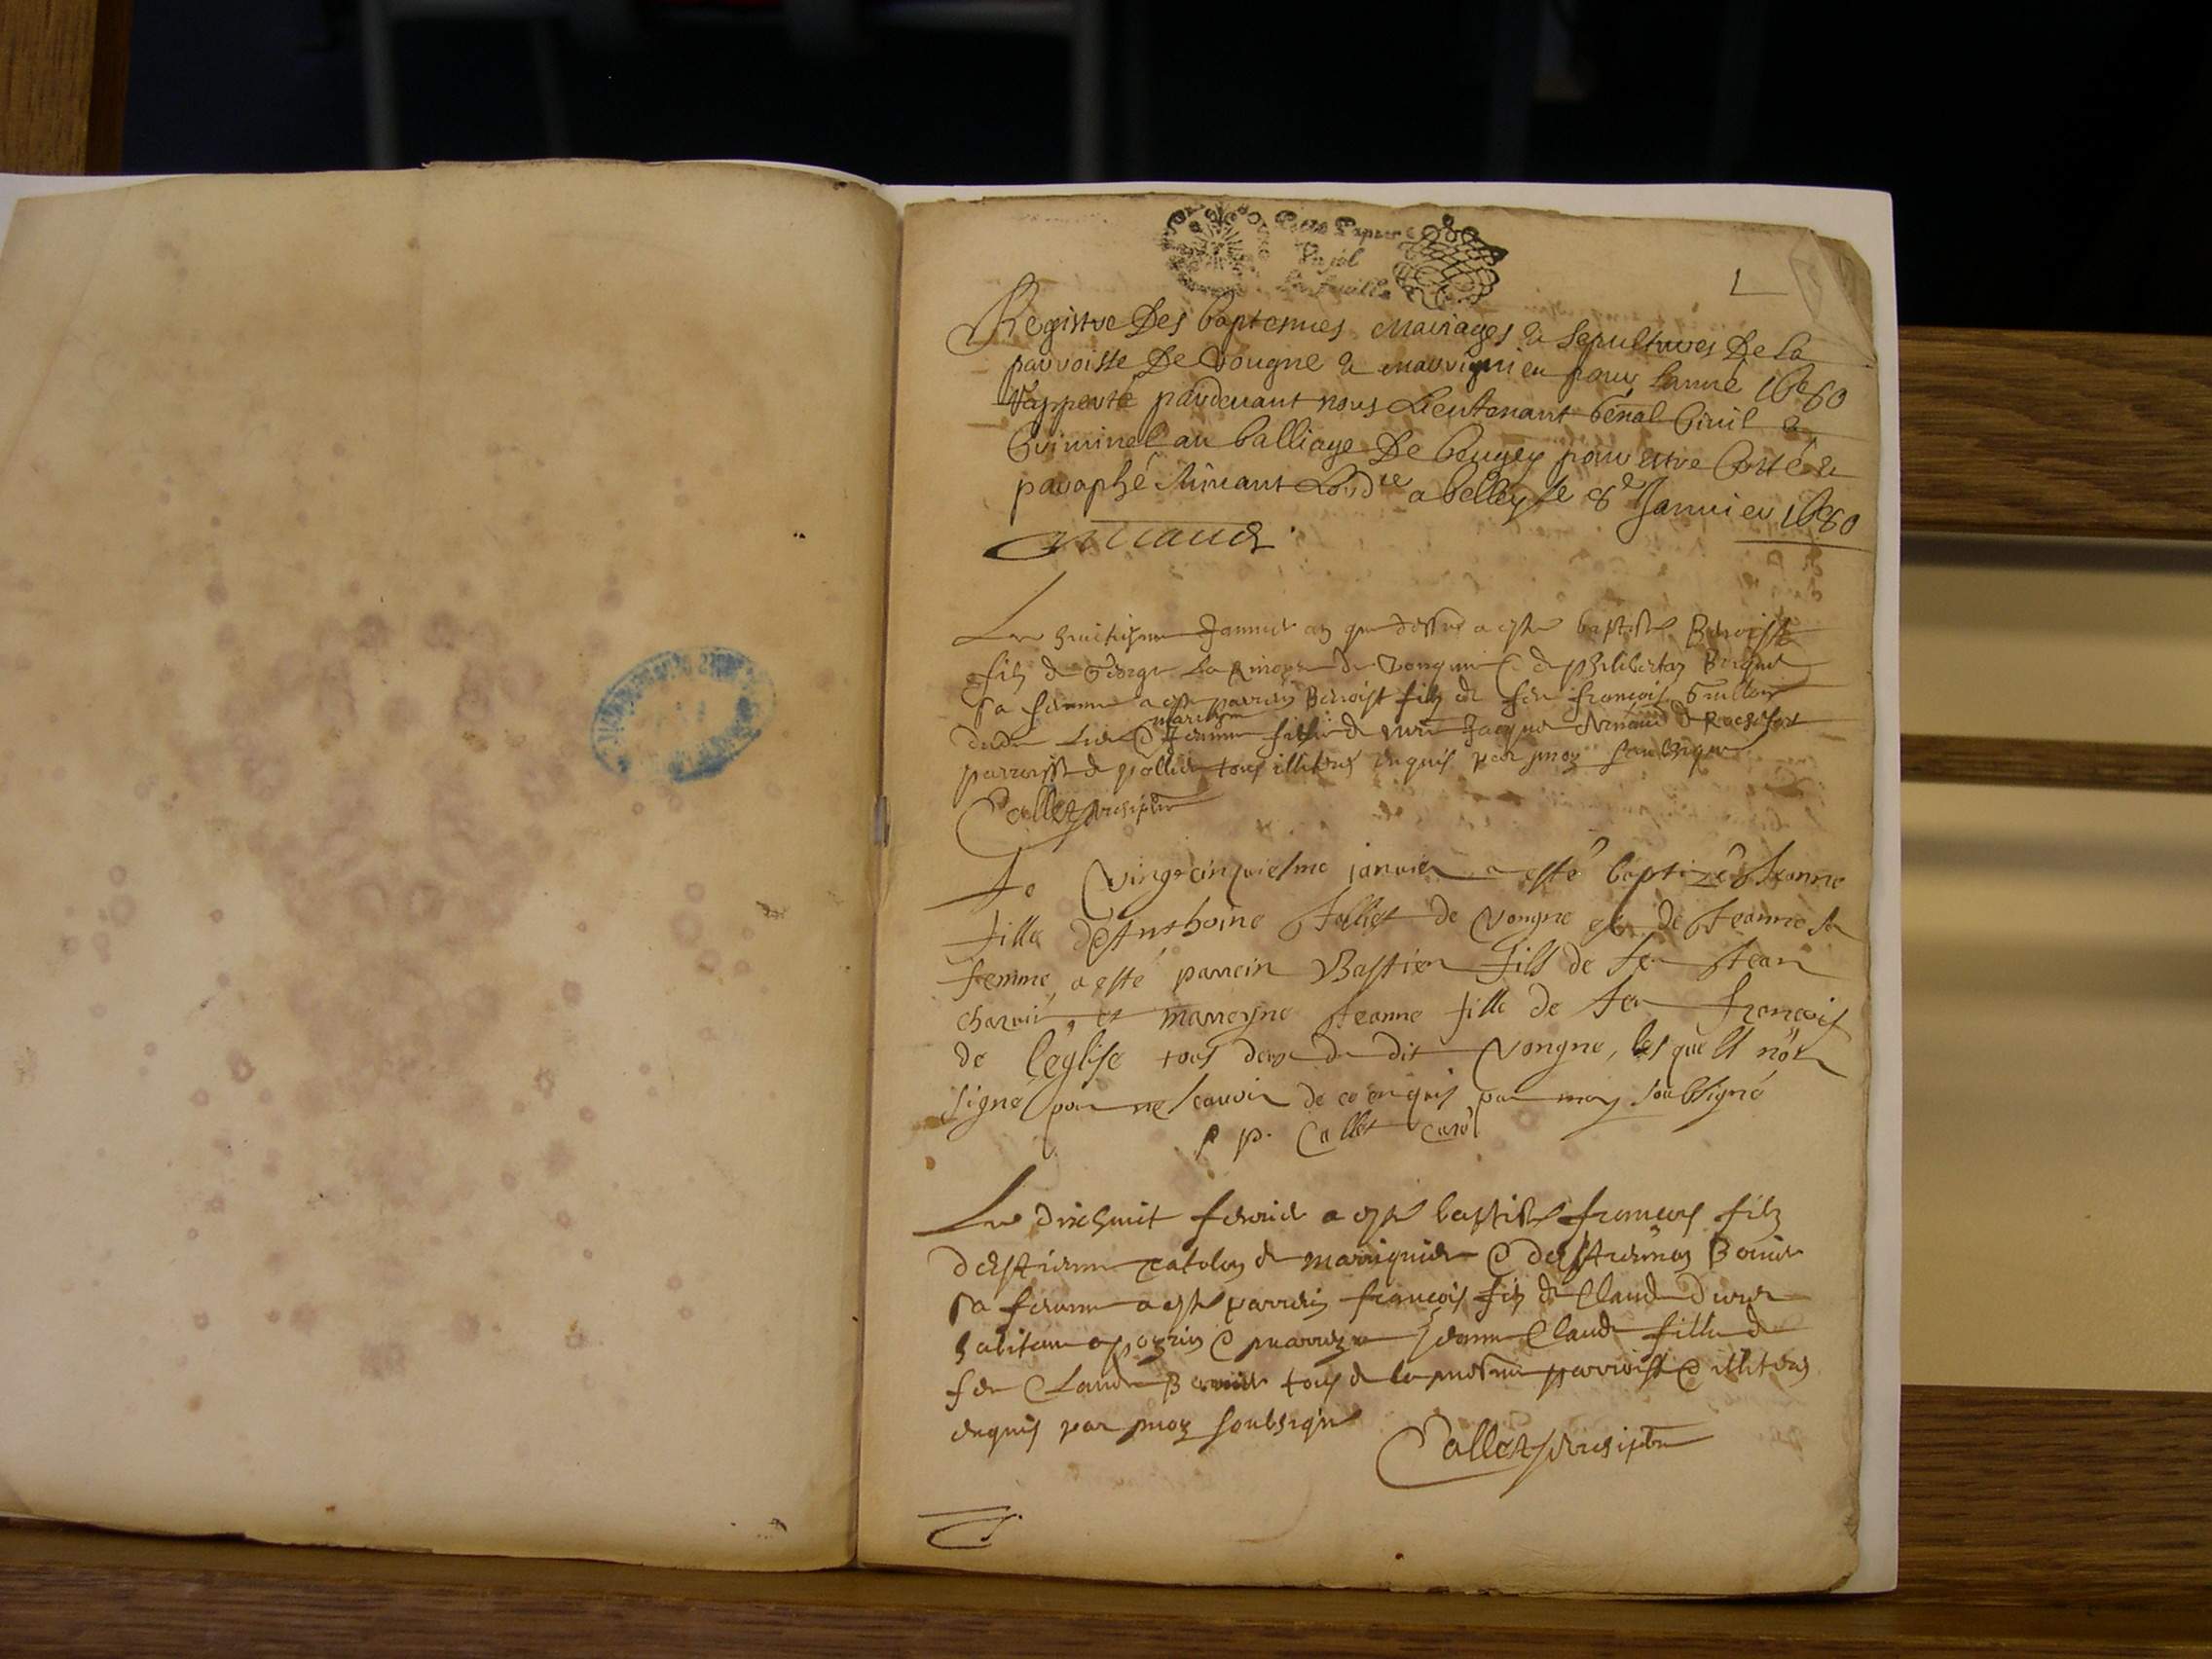 1
Registre Des baptesmes Mariages & Sepultures De la
parroisse De Vongne & marrignieu pour lanné 1680
Rapporté pardevant nous Lieutenant Genal Civil &
Criminel au balliage De Bugey pour estre Cotté &
paraphé suivant Lord^ce a belley le 8^e Janvier 1680
Le huictiesme Janvier an que dessus a esté baptisé Benoist
filz de George de Vongne & de philiberte
sa femme a esté parrein Benoist filz de feu françois
dudit Lieu & marreyne Jeanne fille de Jacque de Rochefort
parroisse de pollieu tous illiterés enquis par moy soubsigné
Callet
Le vingtcinquiesme janvier a esté baptizé Jeanne
fille d'Anthoine Jalliet de vongne et de Jeanne sa
femme, a esté parrein Bastien fils de feu Jean
charvin, et marreyne Jeanne fille de feu françois
de l'eglise tous deux du dit vongne, lesquells n'ōt
signé pour ne scavoir de ce enquis par moy soubsigné
p p. Callet curé
Le dixhuit febvrier a esté baptisé françois filz
d'estienne catolin de marrignieu & d'estiennaz Bovier
sa femme a esté parrein françois filz de Claude
habitant a pogrin & marreyne Jeanne Claude fille de
feu Claude Bovier tous de la mesme parroisse & illiterés
enquis par moy soubsigné
Callet